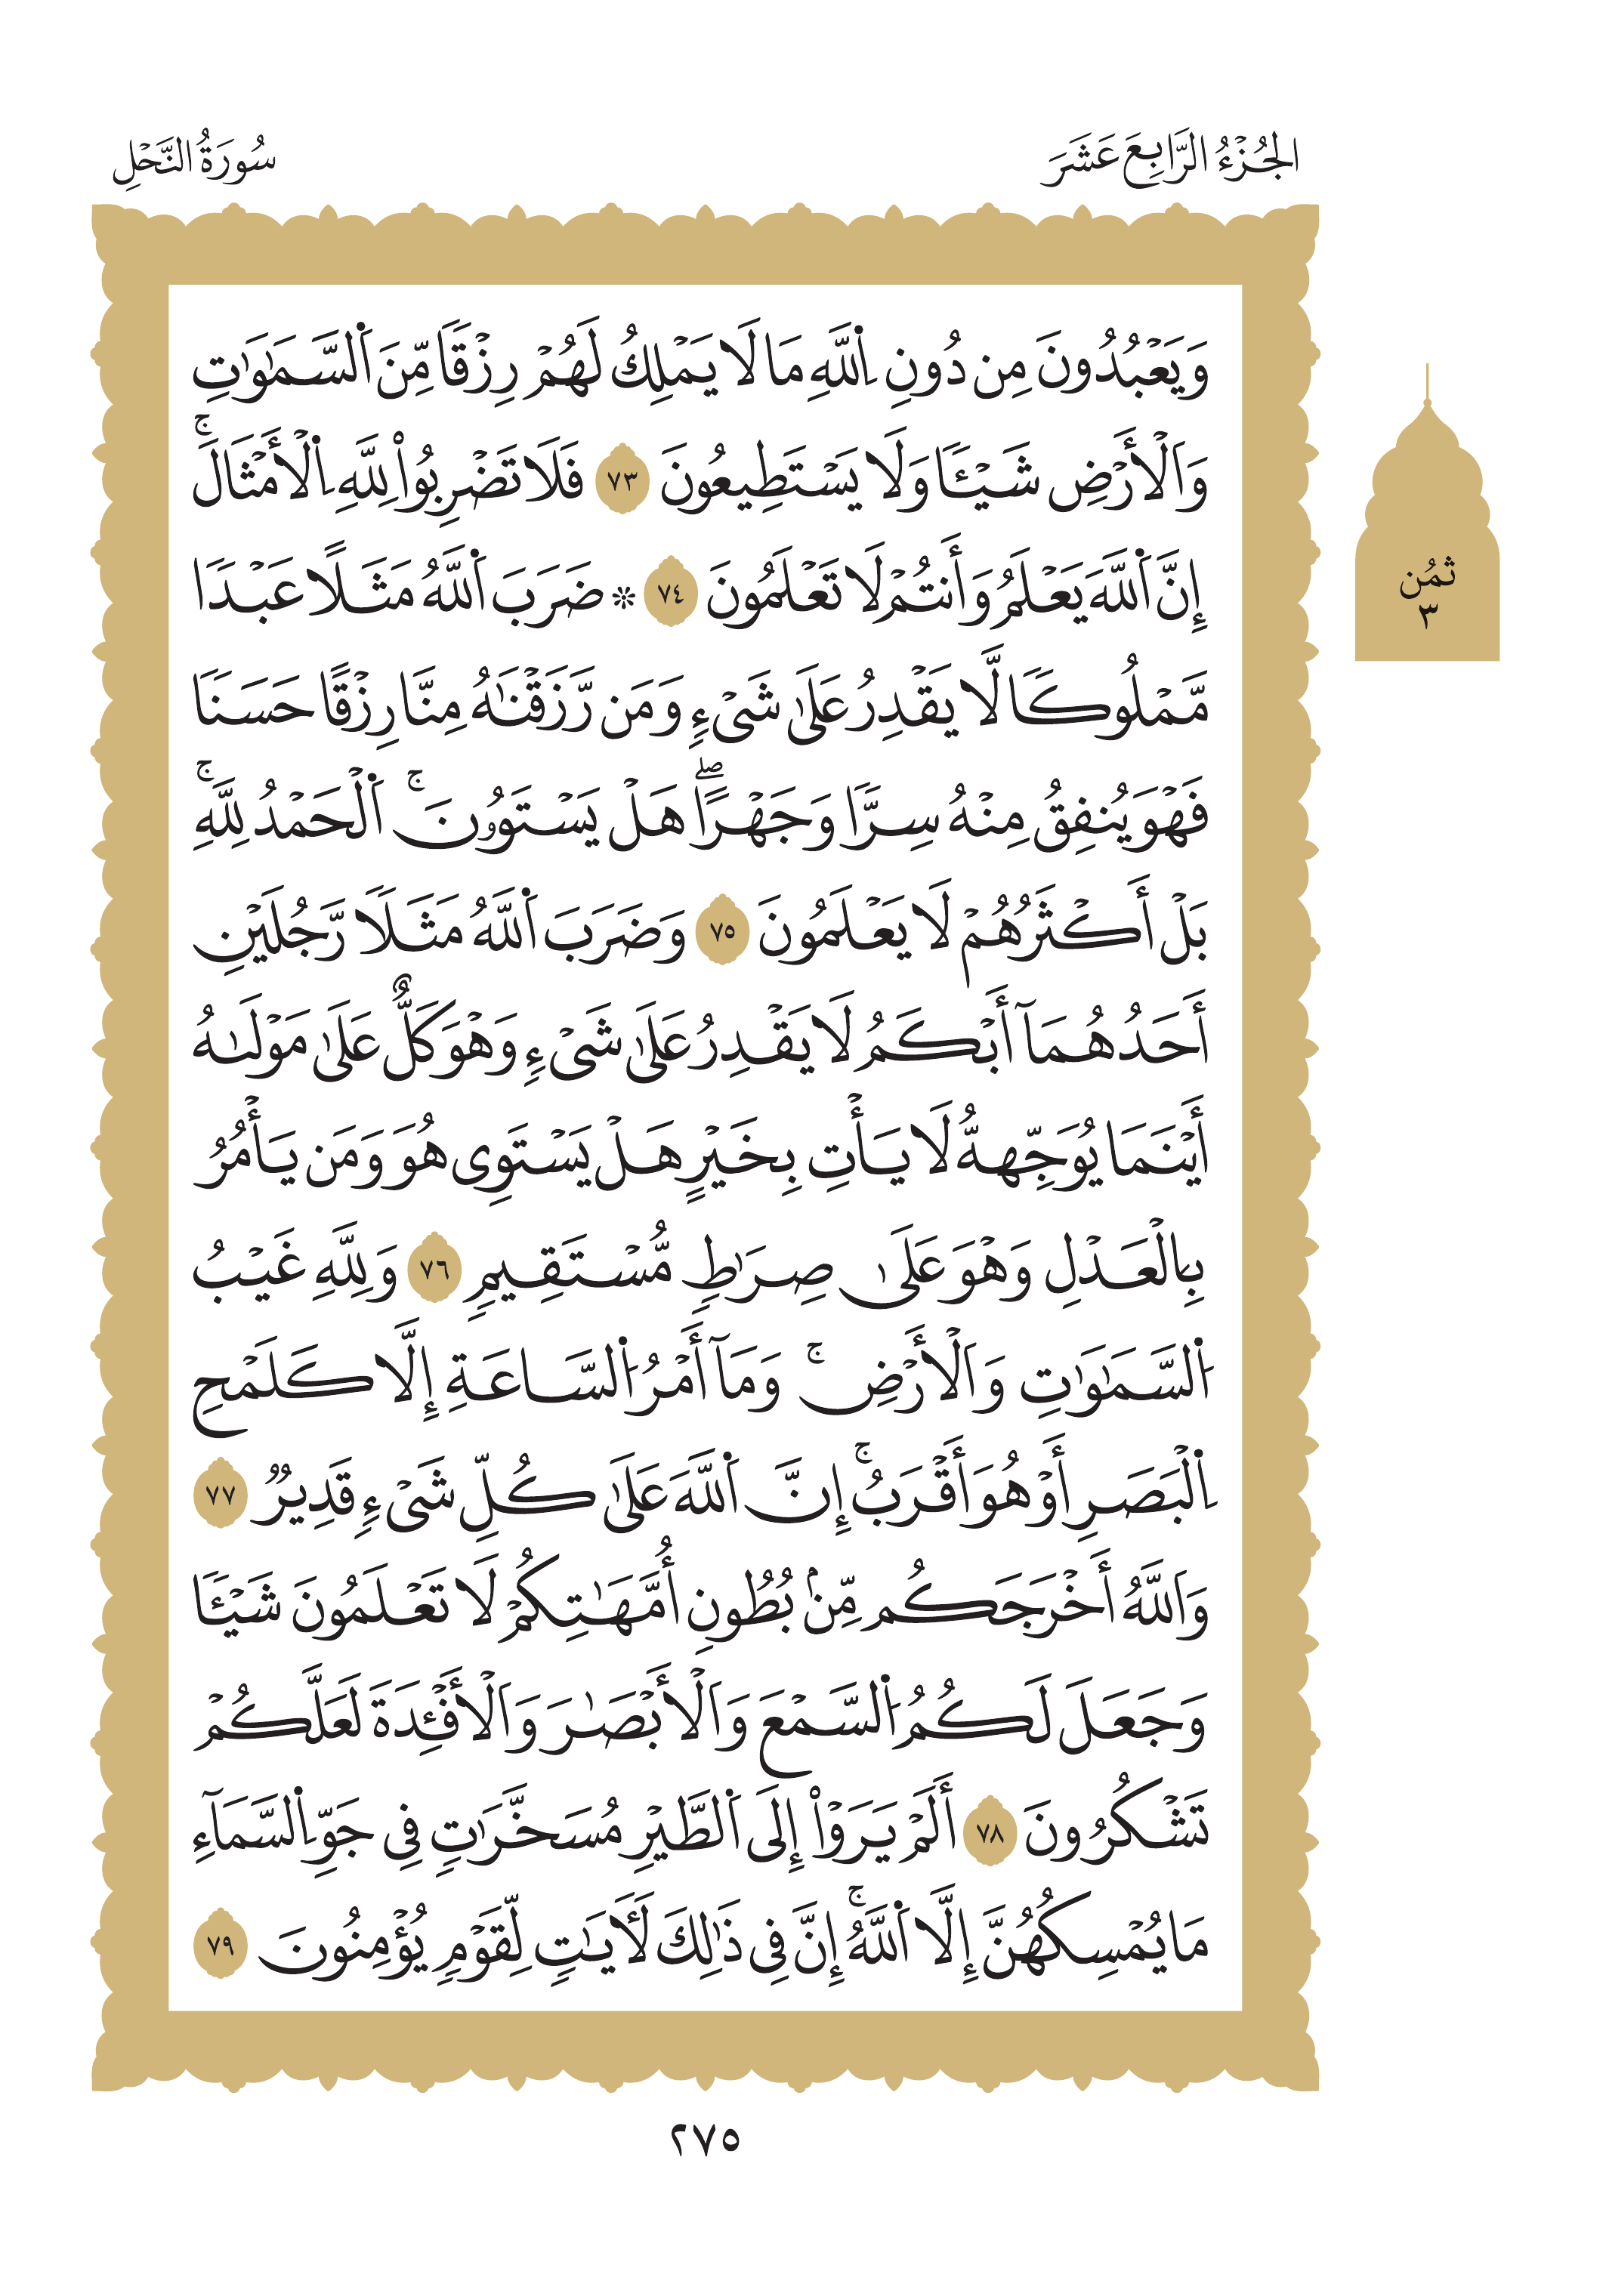 الجُزْءُ الرَّابِعَ عَشَرَ
سُورَةُ النَّحْلِ
وَيَعْبُدُونَ مِن دُونِ اِ۬للَّهِ مَا لَا يَمْلِكُ لَهُمْ رِزْقاٗ مِّنَ اَ۬لسَّمَٰوَٰتِ
وَالْأَرْضِ شَيْـٔاٗ وَلَا يَسْتَطِيعُونَ ٧٣ فَلَا تَضْرِبُواْ لِلهِ اِ۬لْأَمْثَالَۚ
إِنَّ اَ۬للَّهَ يَعْلَمُ وَأَنتُمْ لَا تَعْلَمُونَ ٧٤ ۞ ضَرَبَ اَ۬للَّهُ مَثَلًا عَبْدٗا
مَّمْلُوكٗا لَّا يَقْدِرُ عَلَىٰ شَيْءٖ وَمَن رَّزَقْنَٰهُ مِنَّا رِزْقًا حَسَنٗا
فَهْوَ يُنفِقُ مِنْهُ سِرّٗا وَجَهْرًاۖ هَلْ يَسْتَوُۥنَۚ اَ۬لْحَمْدُ لِلهِۚ
بَلْ أَكْثَرُهُمْ لَا يَعْلَمُونَ ٧٥ وَضَرَبَ اَ۬للَّهُ مَثَلٗا رَّجُلَيْنِ
أَحَدُهُمَآ أَبْكَمُ لَا يَقْدِرُ عَلَىٰ شَيْءٖ وَهْوَ كَلٌّ عَلَىٰ مَوْلَىٰهُ
أَيْنَمَا يُوَجِّههُّ لَا يَأْتِ بِخَيْرٍ هَلْ يَسْتَوِي هُوَ وَمَن يَأْمُرُ
بِالْعَدْلِ وَهْوَ عَلَىٰ صِرَٰطٖ مُّسْتَقِيمٖ ٧٦ وَلِلهِ غَيْبُ
اُ۬لسَّمَٰوَٰتِ وَالْأَرْضِۚ وَمَآ أَمْرُ اُ۬لسَّاعَةِ إِلَّا كَلَمْحِ
اِ۬لْبَصَرِ أَوْ هُوَ أَقْرَبُۚ إِنَّ اَ۬للَّهَ عَلَىٰ كُلِّ شَيْءٖ قَدِيرٞ ٧٧
وَاللَّهُ أَخْرَجَكُم مِّنۢ بُطُونِ أُمَّهَٰتِكُمْ لَا تَعْلَمُونَ شَيْـٔاٗ
وَجَعَلَ لَكُمُ اُ۬لسَّمْعَ وَالْأَبْصَٰرَ وَالْأَفْـِٔدَةَ لَعَلَّكُمْ
تَشْكُرُونَ ٧٨ أَلَمْ يَرَوْاْ إِلَى اَ۬لطَّيْرِ مُسَخَّرَٰتٖ فِي جَوِّ اِ۬لسَّمَآءِ
مَا يُمْسِكُهُنَّ إِلَّا اَ۬للَّهُۚ إِنَّ فِي ذَٰلِكَ لَأٓيَٰتٖ لِّقَوْمٖ يُؤْمِنُونَ ٧٩
ثمُن
٣
٢٧٥